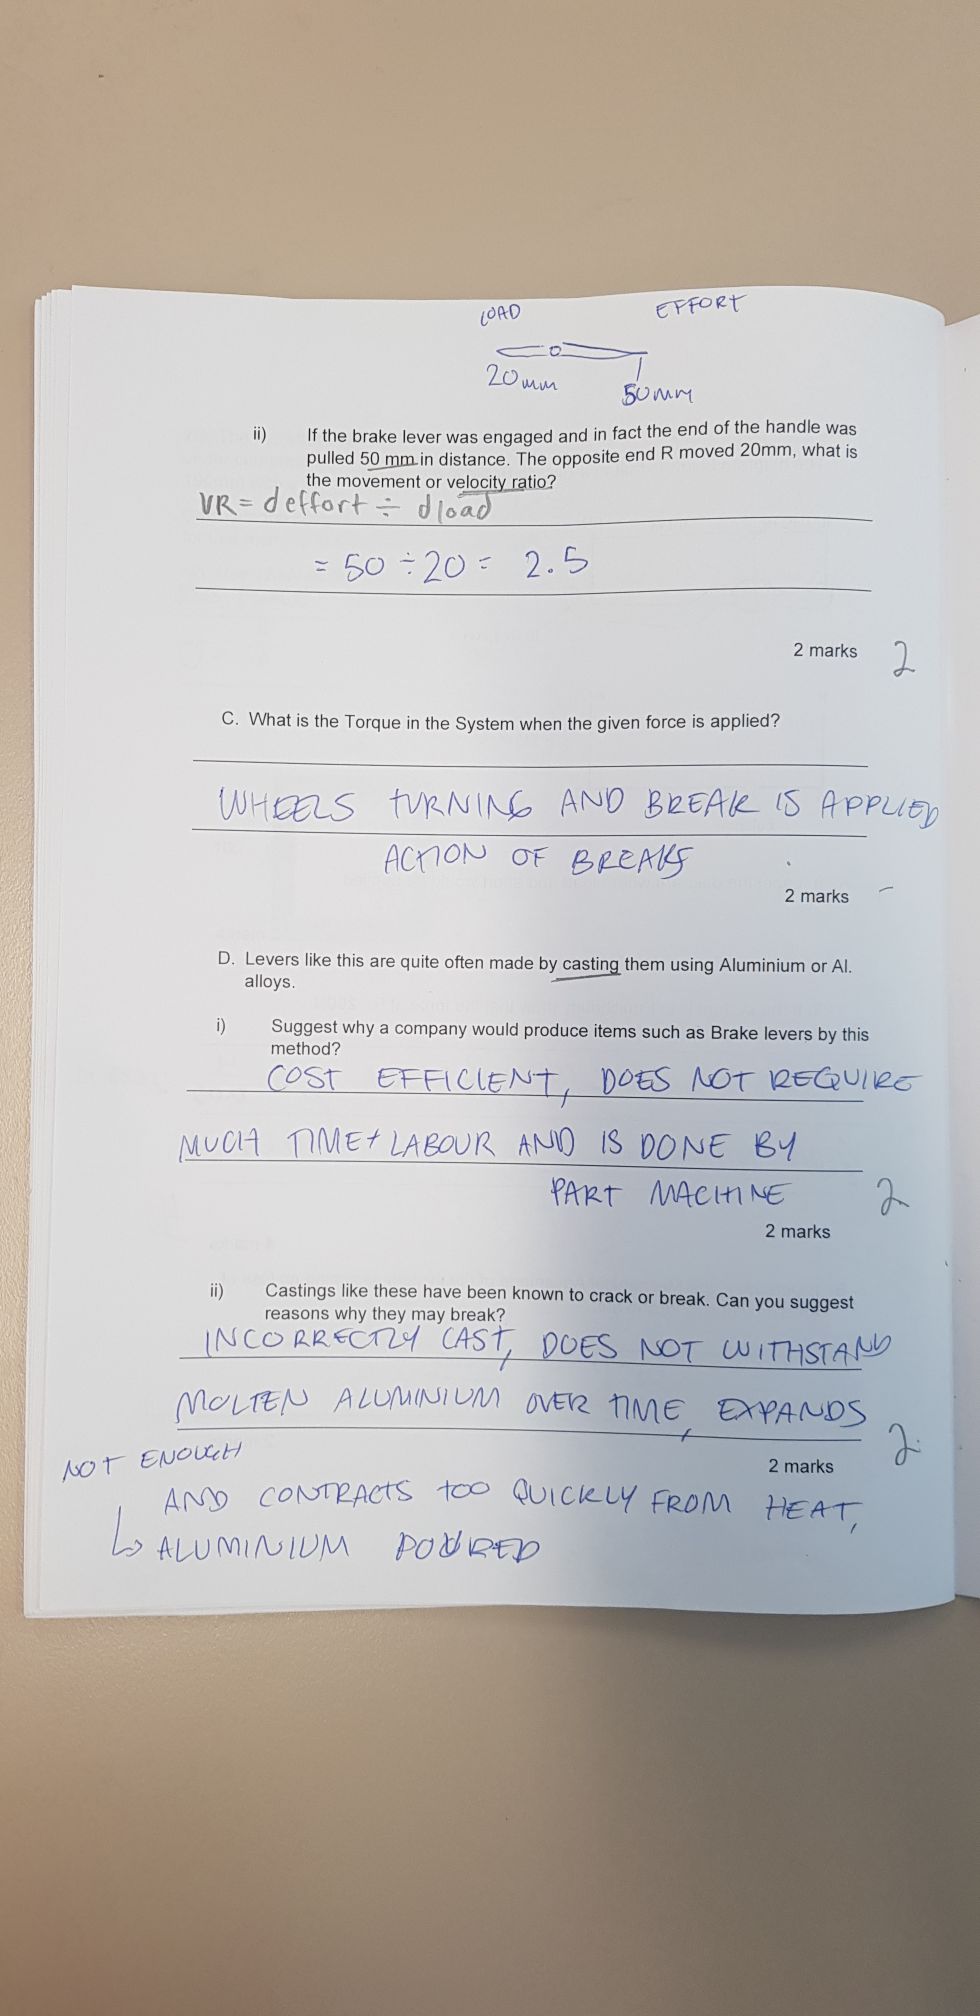 LOAD EFFORT
20mm
50mm
ii) If the brake lever was engaged and in fact the end of the handle was
pulled 50 mm in distance. The opposite end R moved 20mm, what is
the movement or velocity ratio?
VR = deffort ÷ dload
= 50 ÷ 20 = 2.5
2 marks 2
C. What is the Torque in the System when the given force is applied?
WHEELS TURNING AND BREAK IS APPLIED
ACTION OF BREAKS
2 marks –
D. Levers like this are quite often made by casting them using Aluminium or Al.
alloys.
i) Suggest why a company would produce items such as Brake levers by this
method?
COST EFFICIENT, DOES NOT REQUIRE
MUCH TIME + LABOUR AND IS DONE BY
PART MACHINE
2
2 marks
ii) Castings like these have been known to crack or break. Can you suggest
reasons why they may break?
INCORRECTLY CAST, DOES NOT WITHSTAND
MOLTEN ALUMINIUM OVER TIME, EXPANDS
2
NOT ENOUGH
2 marks
AND CONTRACTS TOO QUICKLY FROM HEAT,
↳ ALUMINIUM POURED